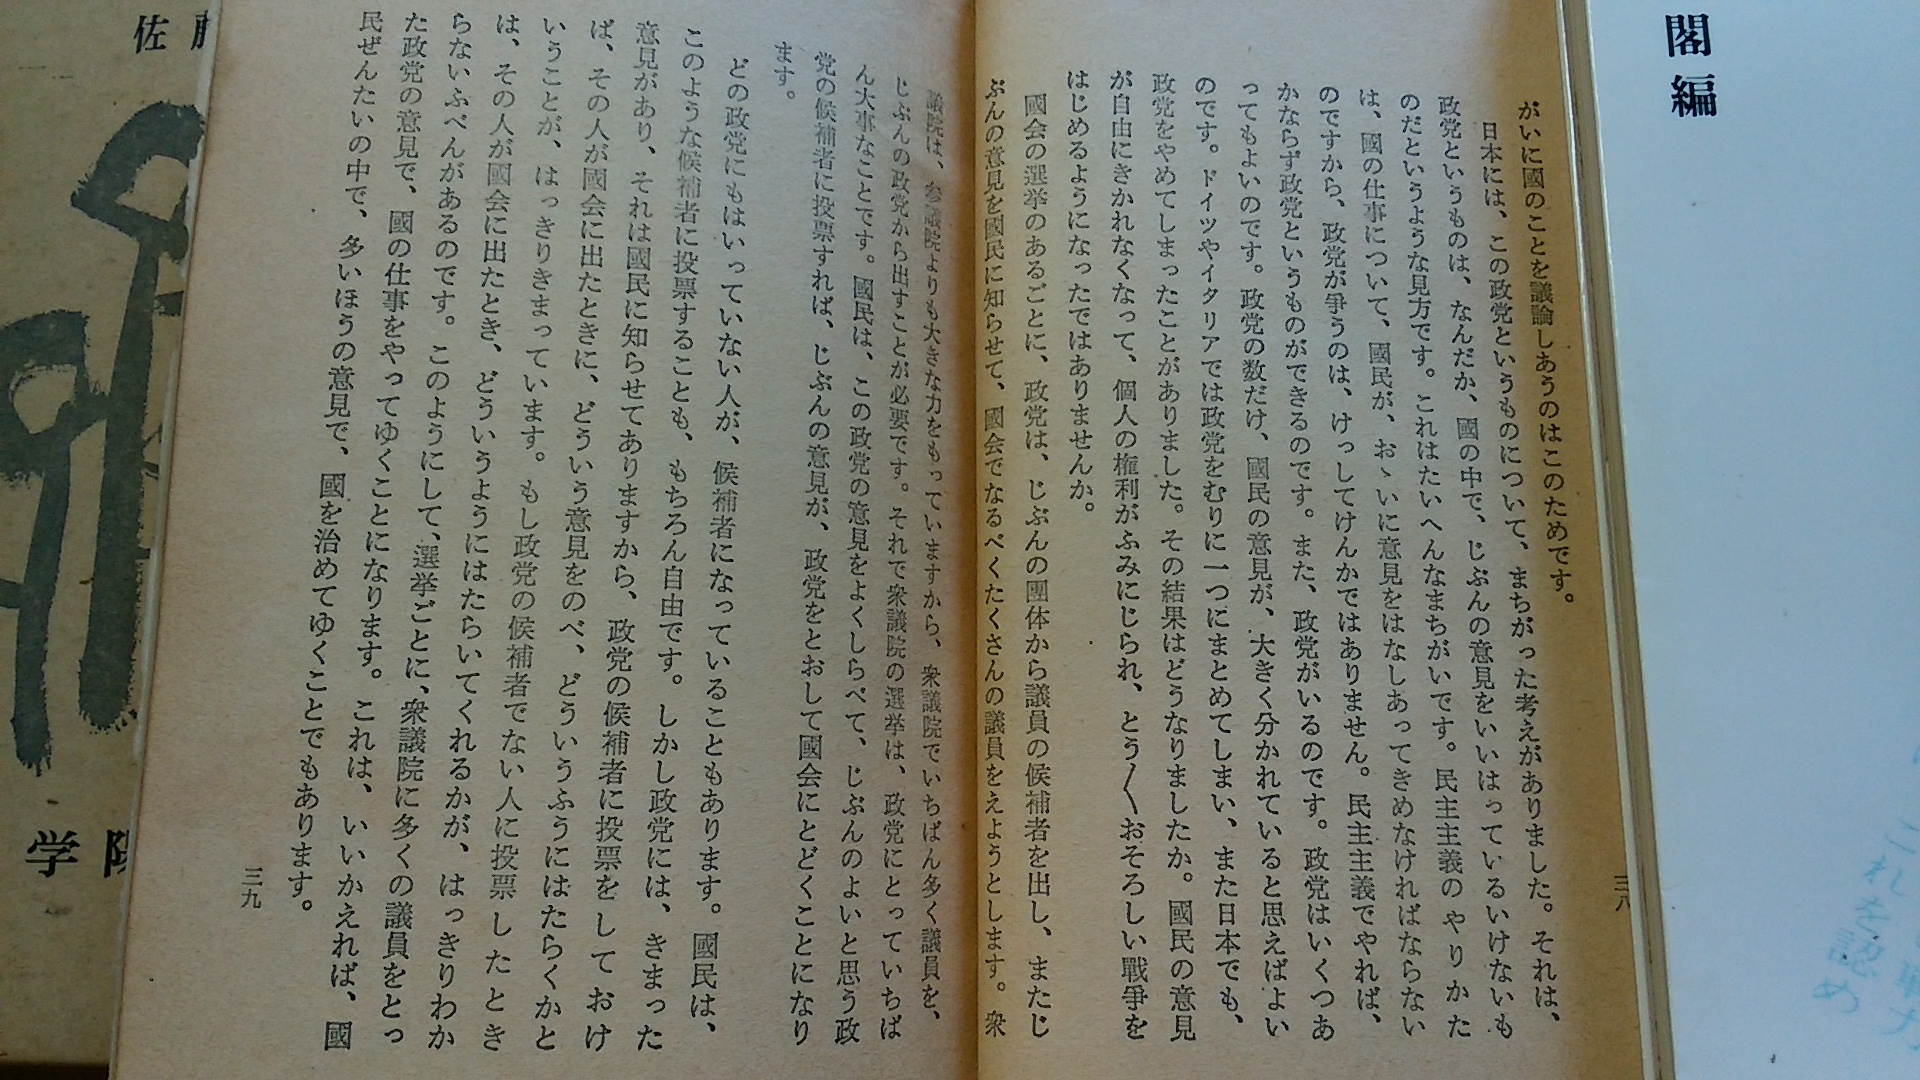 閣編
がいに國のことを議論しあうのはこのためです。
日本には、この政党というものについて、まちがった考えがありました。それは、
政党というものは、なんだか、國の中で、じぶんの意見をいいはっているいけないも
のだというような見方です。これはたいへんなまちがいです。民主主義のやりかた
は、國の仕事について、國民が、おゝいに意見をはなしあってきめなければならない
のですから、政党が爭うのは、けっしてけんかではありません。民主主義でやれば、
かならず政党というものができるのです。また、政党がいるのです。政党はいくつあ
ってもよいのです。政党の数だけ、國民の意見が、大きく分かれていると思えばよい
のです。ドイツやイタリアでは政党をむりに一つにまとめてしまい、また日本でも、
政党をやめてしまったことがありました。その結果はどうなりましたか。國民の意見
が自由にきかれなくなって、個人の権利がふみにじられ、とう〳〵おそろしい戰爭を
はじめるようになったではありませんか。
國会の選挙のあるごとに、政党は、じぶんの團体から議員の候補者を出し、またじ
ぶんの意見を國民に知らせて、國会でなるべくたくさんの議員をえようとします。衆
三八
議院は、参議院よりも大きな力をもっていますから、衆議院でいちばん多く議員を、
じぶんの政党から出すことが必要です。それで衆議院の選挙は、政党にとっていちば
ん大事なことです。國民は、この政党の意見をよくしらべて、じぶんのよいと思う政
党の候補者に投票すれば、じぶんの意見が、政党をとおして國会にとどくことになり
ます。
どの政党にもはいっていない人が、候補者になっていることもあります。國民は、
このような候補者に投票することも、もちろん自由です。しかし政党には、きまった
意見があり、それは國民に知らせてありますから、政党の候補者に投票をしておけ
ば、その人が國会に出たときに、どういう意見をのべ、どういうふうにはたらくかと
いうことが、はっきりきまっています。もし政党の候補者でない人に投票したとき
は、その人が國会に出たとき、どういうようにはたらいてくれるかが、はっきりわか
らないふべんがあるのです。このようにして、選挙ごとに、衆議院に多くの議員をとっ
た政党の意見で、國の仕事をやってゆくことになります。これは、いいかえれば、國
民ぜんたいの中で、多いほうの意見で、國を治めてゆくことでもあります。
三九
佐
学
これを認め